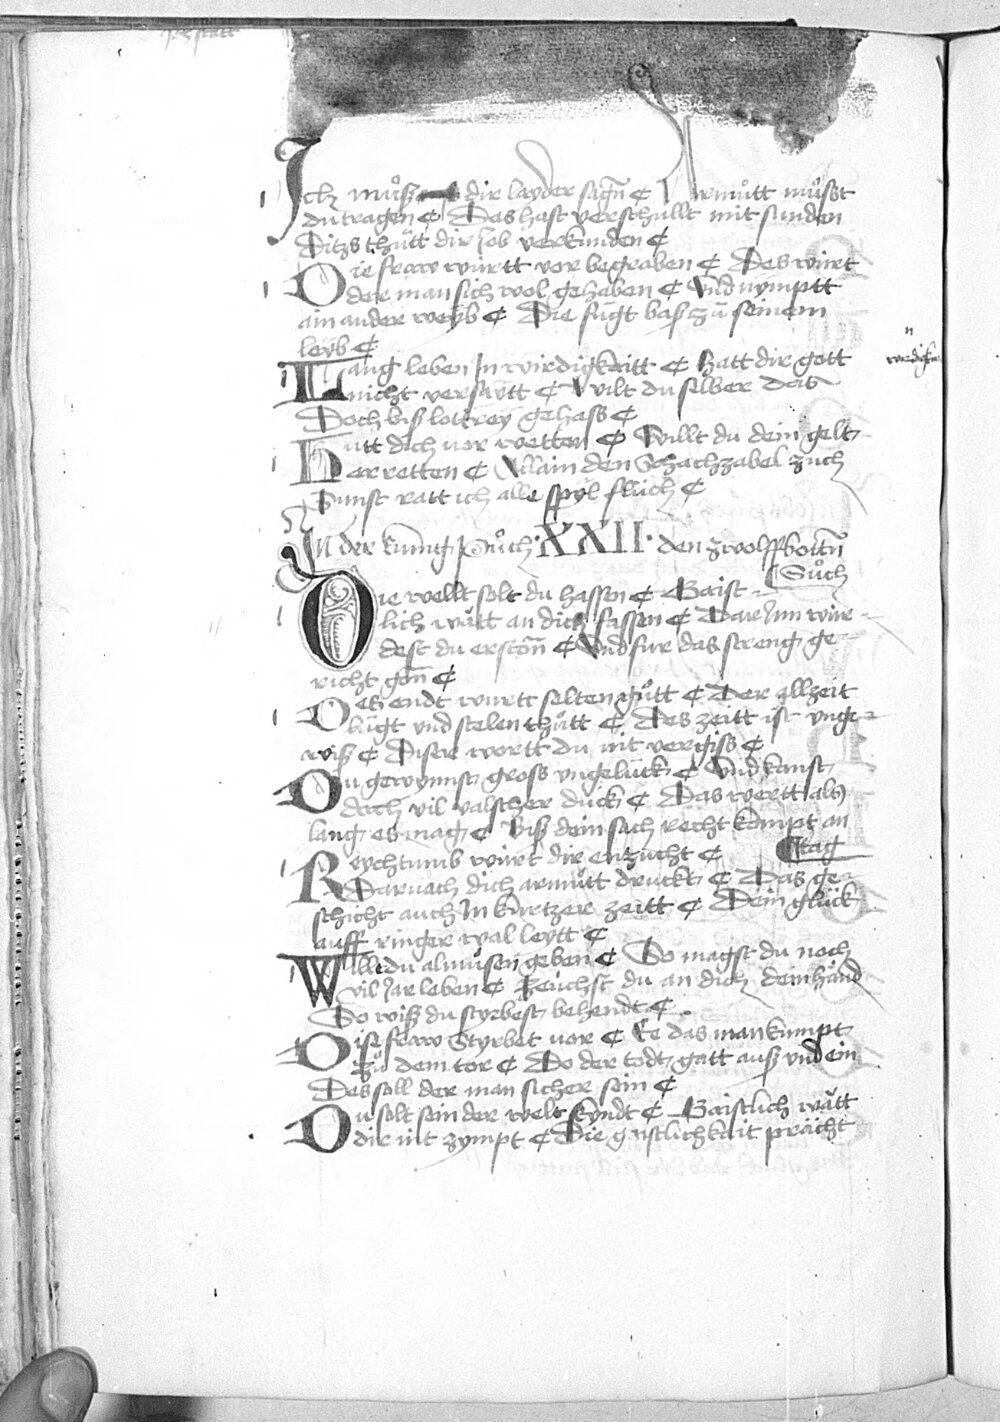 Ich muͦsz dir layder sagn̄ ¶ Armuͦtt muͦst
du tragen ¶ Das hast verschullt mit sunden
Ditzs thuͦtt dir Job verkunden ¶
Die fraw wirtt vor begraben ¶ Des wirt
der man sich wol gehaben ¶ Vnd nymptt
ain ander weyb ¶ Die fuͤgt basz zuͦ seinem
leyb ¶
Lang leben In wirdigkaitt ¶ Hatt dir gott
nicht versaytt ¶ Wilt du selber das
Doch bisz lottrey gehass ¶
Hutt dich vor wetten ¶ Willt du dein gelt
erretten ¶ Allain den Schachzabel zuch
Sunst ratt ich alle spyl fluͤch ¶
In der kunig Puͦch XXII den zwolffbottn̄
Suͦch
Die wellt solt du hassen ¶ Gaist
lich waͤtt an dich fassen ¶ Dar Inn wir
dest du erston̄ ¶ Vnd fur das streng ge
richt gon̄ ¶
Des endt wirtt selten guͦtt ¶ Der allzeit
luͤgt vnd stelen thuͦtt ¶ Des zeitt ist vnge
wisz ¶ Diser wortt du nit vergiss ¶
Du gewynnst gross vngeluͤck ¶ Vnd kanst
doch vil valscher duck ¶ Das wertt als
lang es mag ¶ Bisz dein sach recht kompt an
¶ tag
Reychtumb wirt dir enzucht ¶
Darnach dich armuͦtt druckt ¶ Das ge
schicht auch In kurtzer zeitt ¶ Dein gluͤck
auff ringer wal leytt ¶
Willt du almuͦsen geben ¶ So magst du noch
vil Jar leben ¶ Zeuchst du an dich dein haͤnd
So wisz du styrbest behendt ¶
Dise fraw Styrbet vor ¶ Ee das man kumpt
Zuͦ dem tor ¶ Do der todt gatt ausz vnd ein
Des soll der man sicher sein ¶
Du solt sein der welt kyndt ¶ Gaistlich waͤtt
dir nit zympt ¶ Die gaistlichkait praͤcht